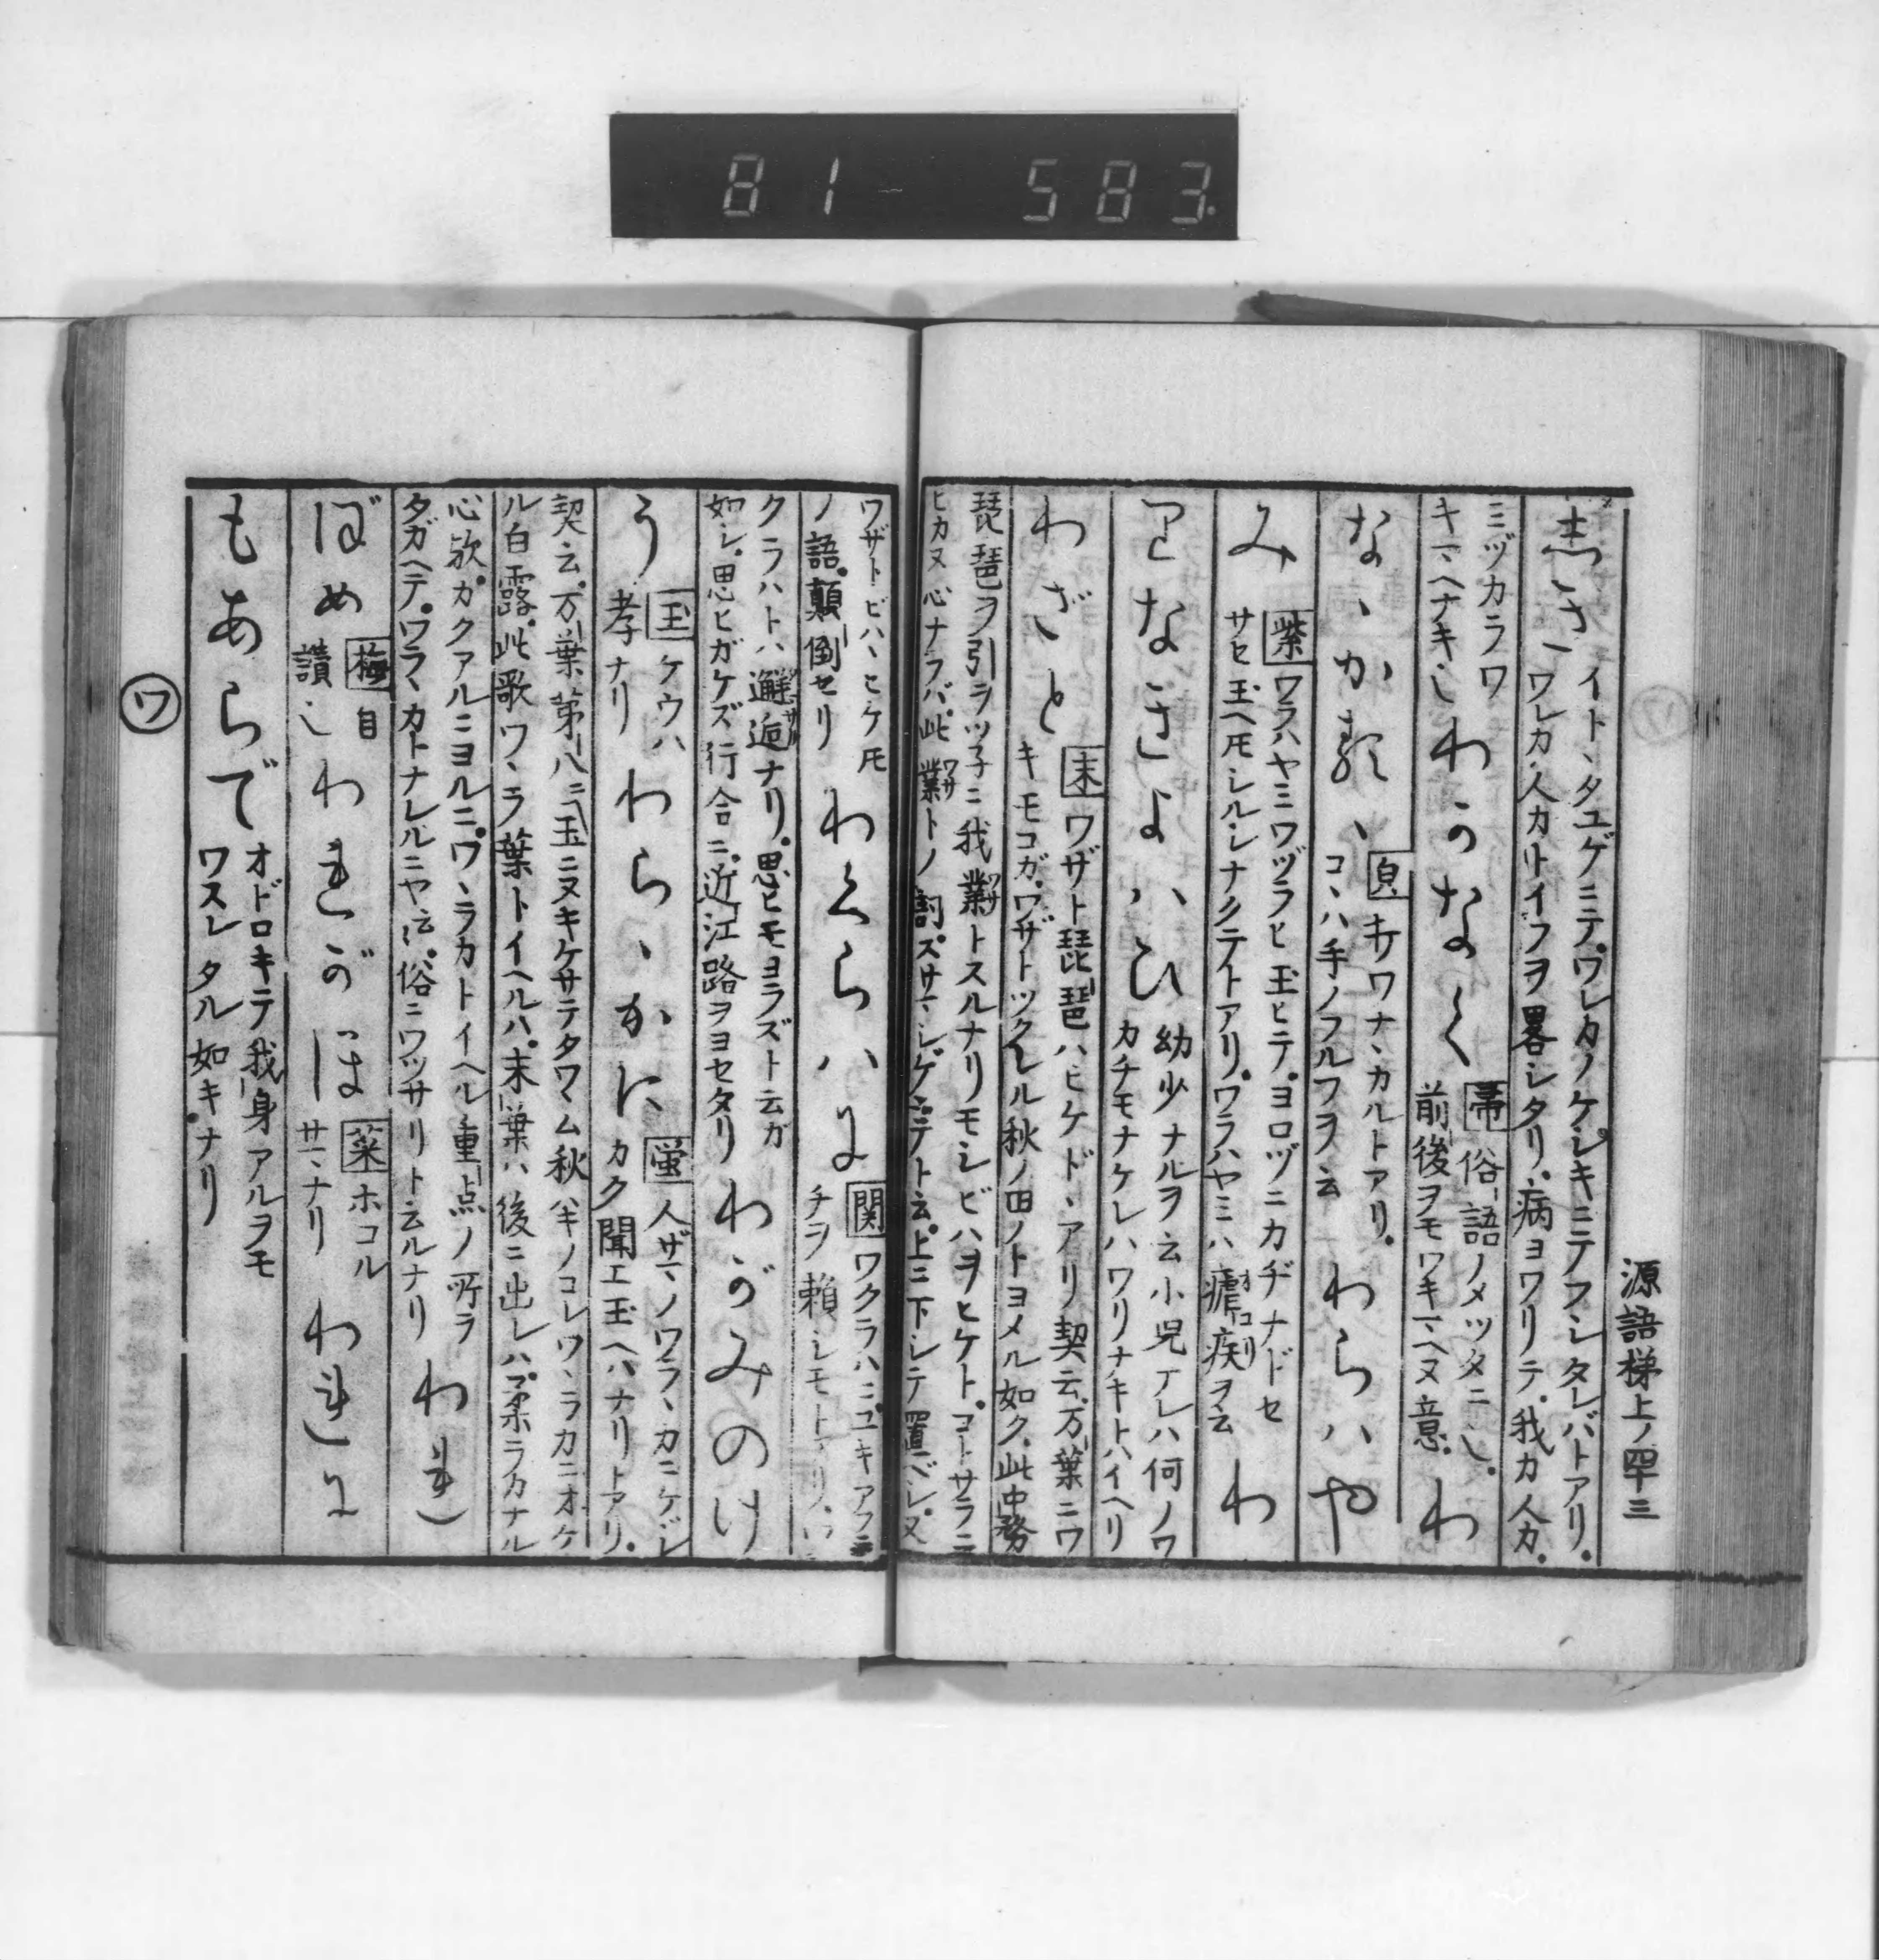 81-583
源語梯上ノ四十三
しき
イトヽタユゲミテ。ワレカノケシキニテフシタレバトアリ。
ワレカ人カトイフヲ畧シタリ。病ヨワリテ。我カ人カ。
ミヅカラワ
キマヘナキ也
わかなく
帚 俗語ノメツタニ也。
前後ヲモワキマヘヌ意。
わ
なゝかるゝ
コヽハ手ノフルフヲ云
わらハや
み
紫 ワラハヤミニワヅラヒ玉ヒテ。ヨロヅニカヂナドセ
サセ玉ヘ𪜈シルシナクテトアリ。ワラハヤミハ瘧疾ヲ云
わ
幼少ナルヲ云小児アレハ何ノワ
カチモナケレハワリナキトハイヘリ
わざと
末 ワザト琵琶ハヒケドヽアリ契云万葉ニワ
キモコガ。ワザトツクレル秋ノ田ノトヨメル如ク。此中務
琵琶ヲ引ヲツ子ニ我業トスルナリモシビハヲヒケト。コトサラニ
ヒカヌ心ナラバ。此業トノ詞。ズサマシゲニテト云。上ニ下シテ置ベシ。又
ワザトビハヽヒケ𪜈
ノ語。顛倒セリ
わくらハに
関 ワクラハニユキアフミ
チヲ頼シモ
クラハトハ邂逅ナリ。思ヒモヨラズト云ガ
如シ。思ヒガケズ行合ニ。近江路ヲヨセタリ
わがみのけ
う
玉 ケウハ
孝ナリ
わらゝかに
蛍 人ザマノワラヽカニケヂ
カク聞エ玉ヘハナリトアリ。
契云。万葉第八ニ玉ニヌキケサテタワマム秋ハギノコレワヽラカニオケ
ル白露。此歌ワヽラ葉トイヘルハ。末葉ハ後ニ出レハ。柔ラカナル
心欤。カクアルニヨルニ。ワヽラカトイヘル重点ノ所ヲ
タガヘテ。ワラヽカトナレルニヤ云々。俗ニワツサリト云ルナリ
われ
ぼめ
梅 自
讃也
われがほ
菜 ホコル
サマナリ
われに
もあらで
オドロキテ我身アルヲモ
ワスレタル如キナリ
ワ